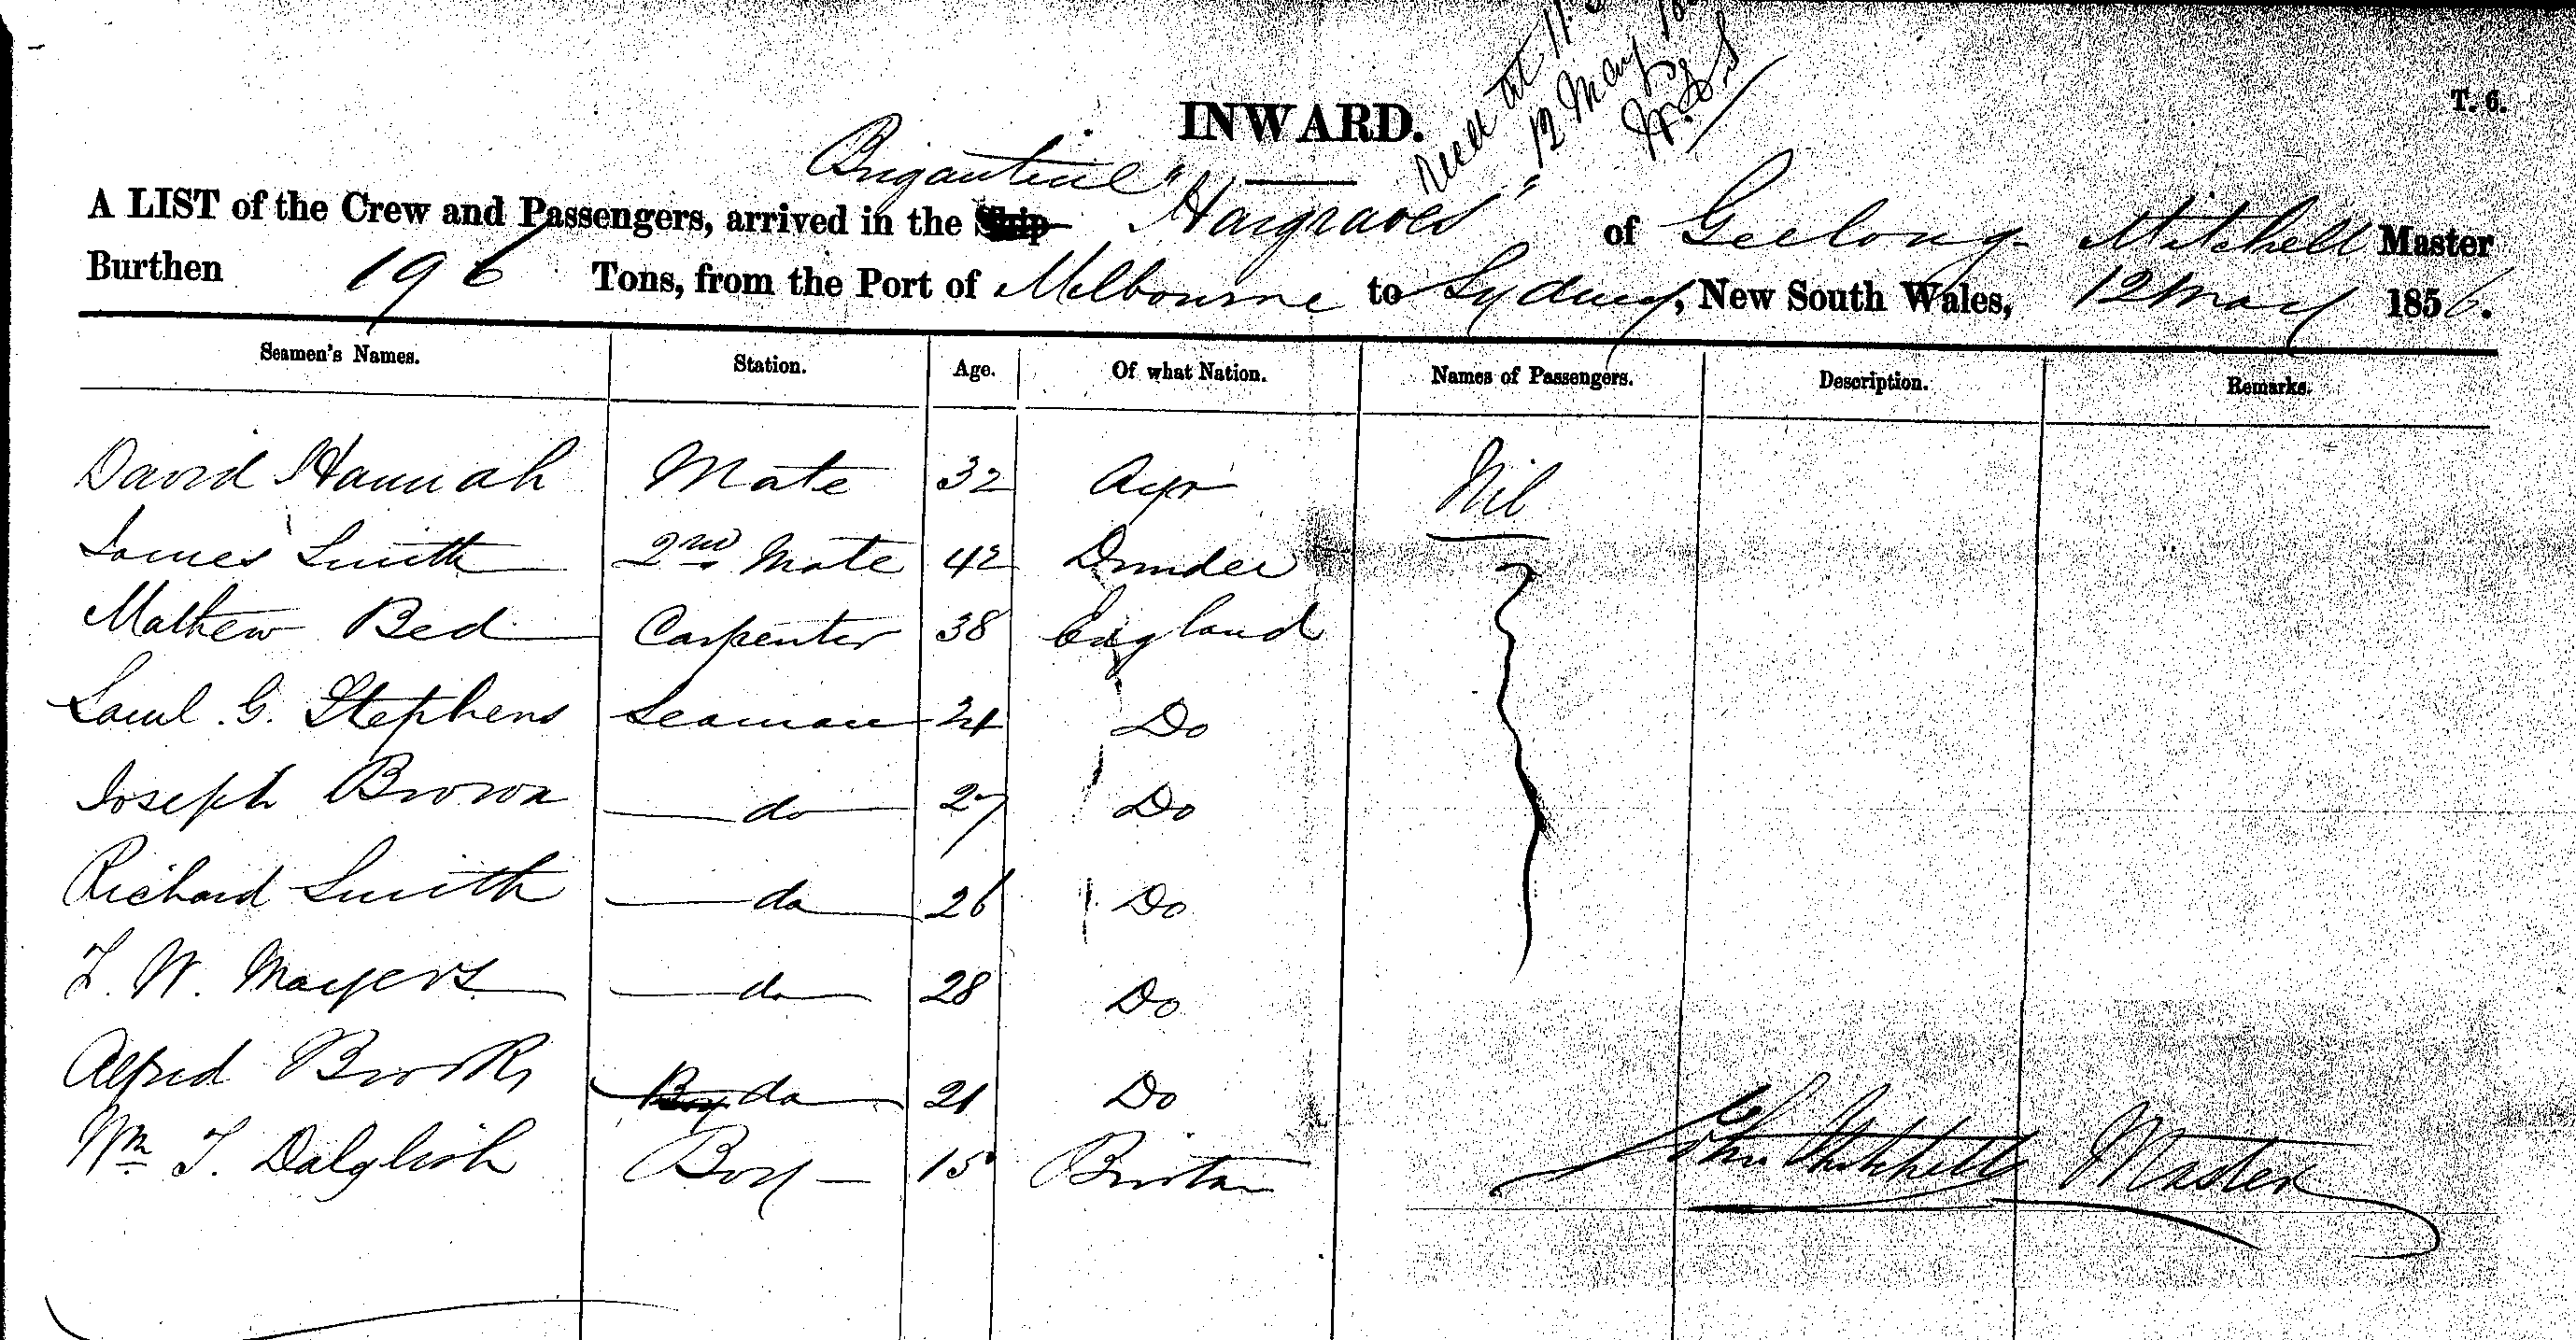 T. 6.
INWARD.
Recd at 11.
12 May
Brigantine
A LIST of the Crew and Passengers, arrived in the Ship "Hargraves" of Geelong Mitchell Master
Burthen 196 Tons, from the Port of Melbourne to Sydney, New South Wales, 12 May 1856.
Seamen's Names. Station. Age. Of what Nation. Names of Passengers. Description. Remarks.
David Hannah Mate 32 Ayr Nil
James Smith 2nd Mate 42 Dundee
Mathew Bed Carpenter 38 England
Saml. G. Stephens Seaman 24 Do
Joseph Brown do 27 Do
Richard Smith do 26 Do
W. Mayers do 28 Do
Alfred Brooks Boy do 21 Do
Wm J. Dalglish Boy 15 
John Mitchell Master